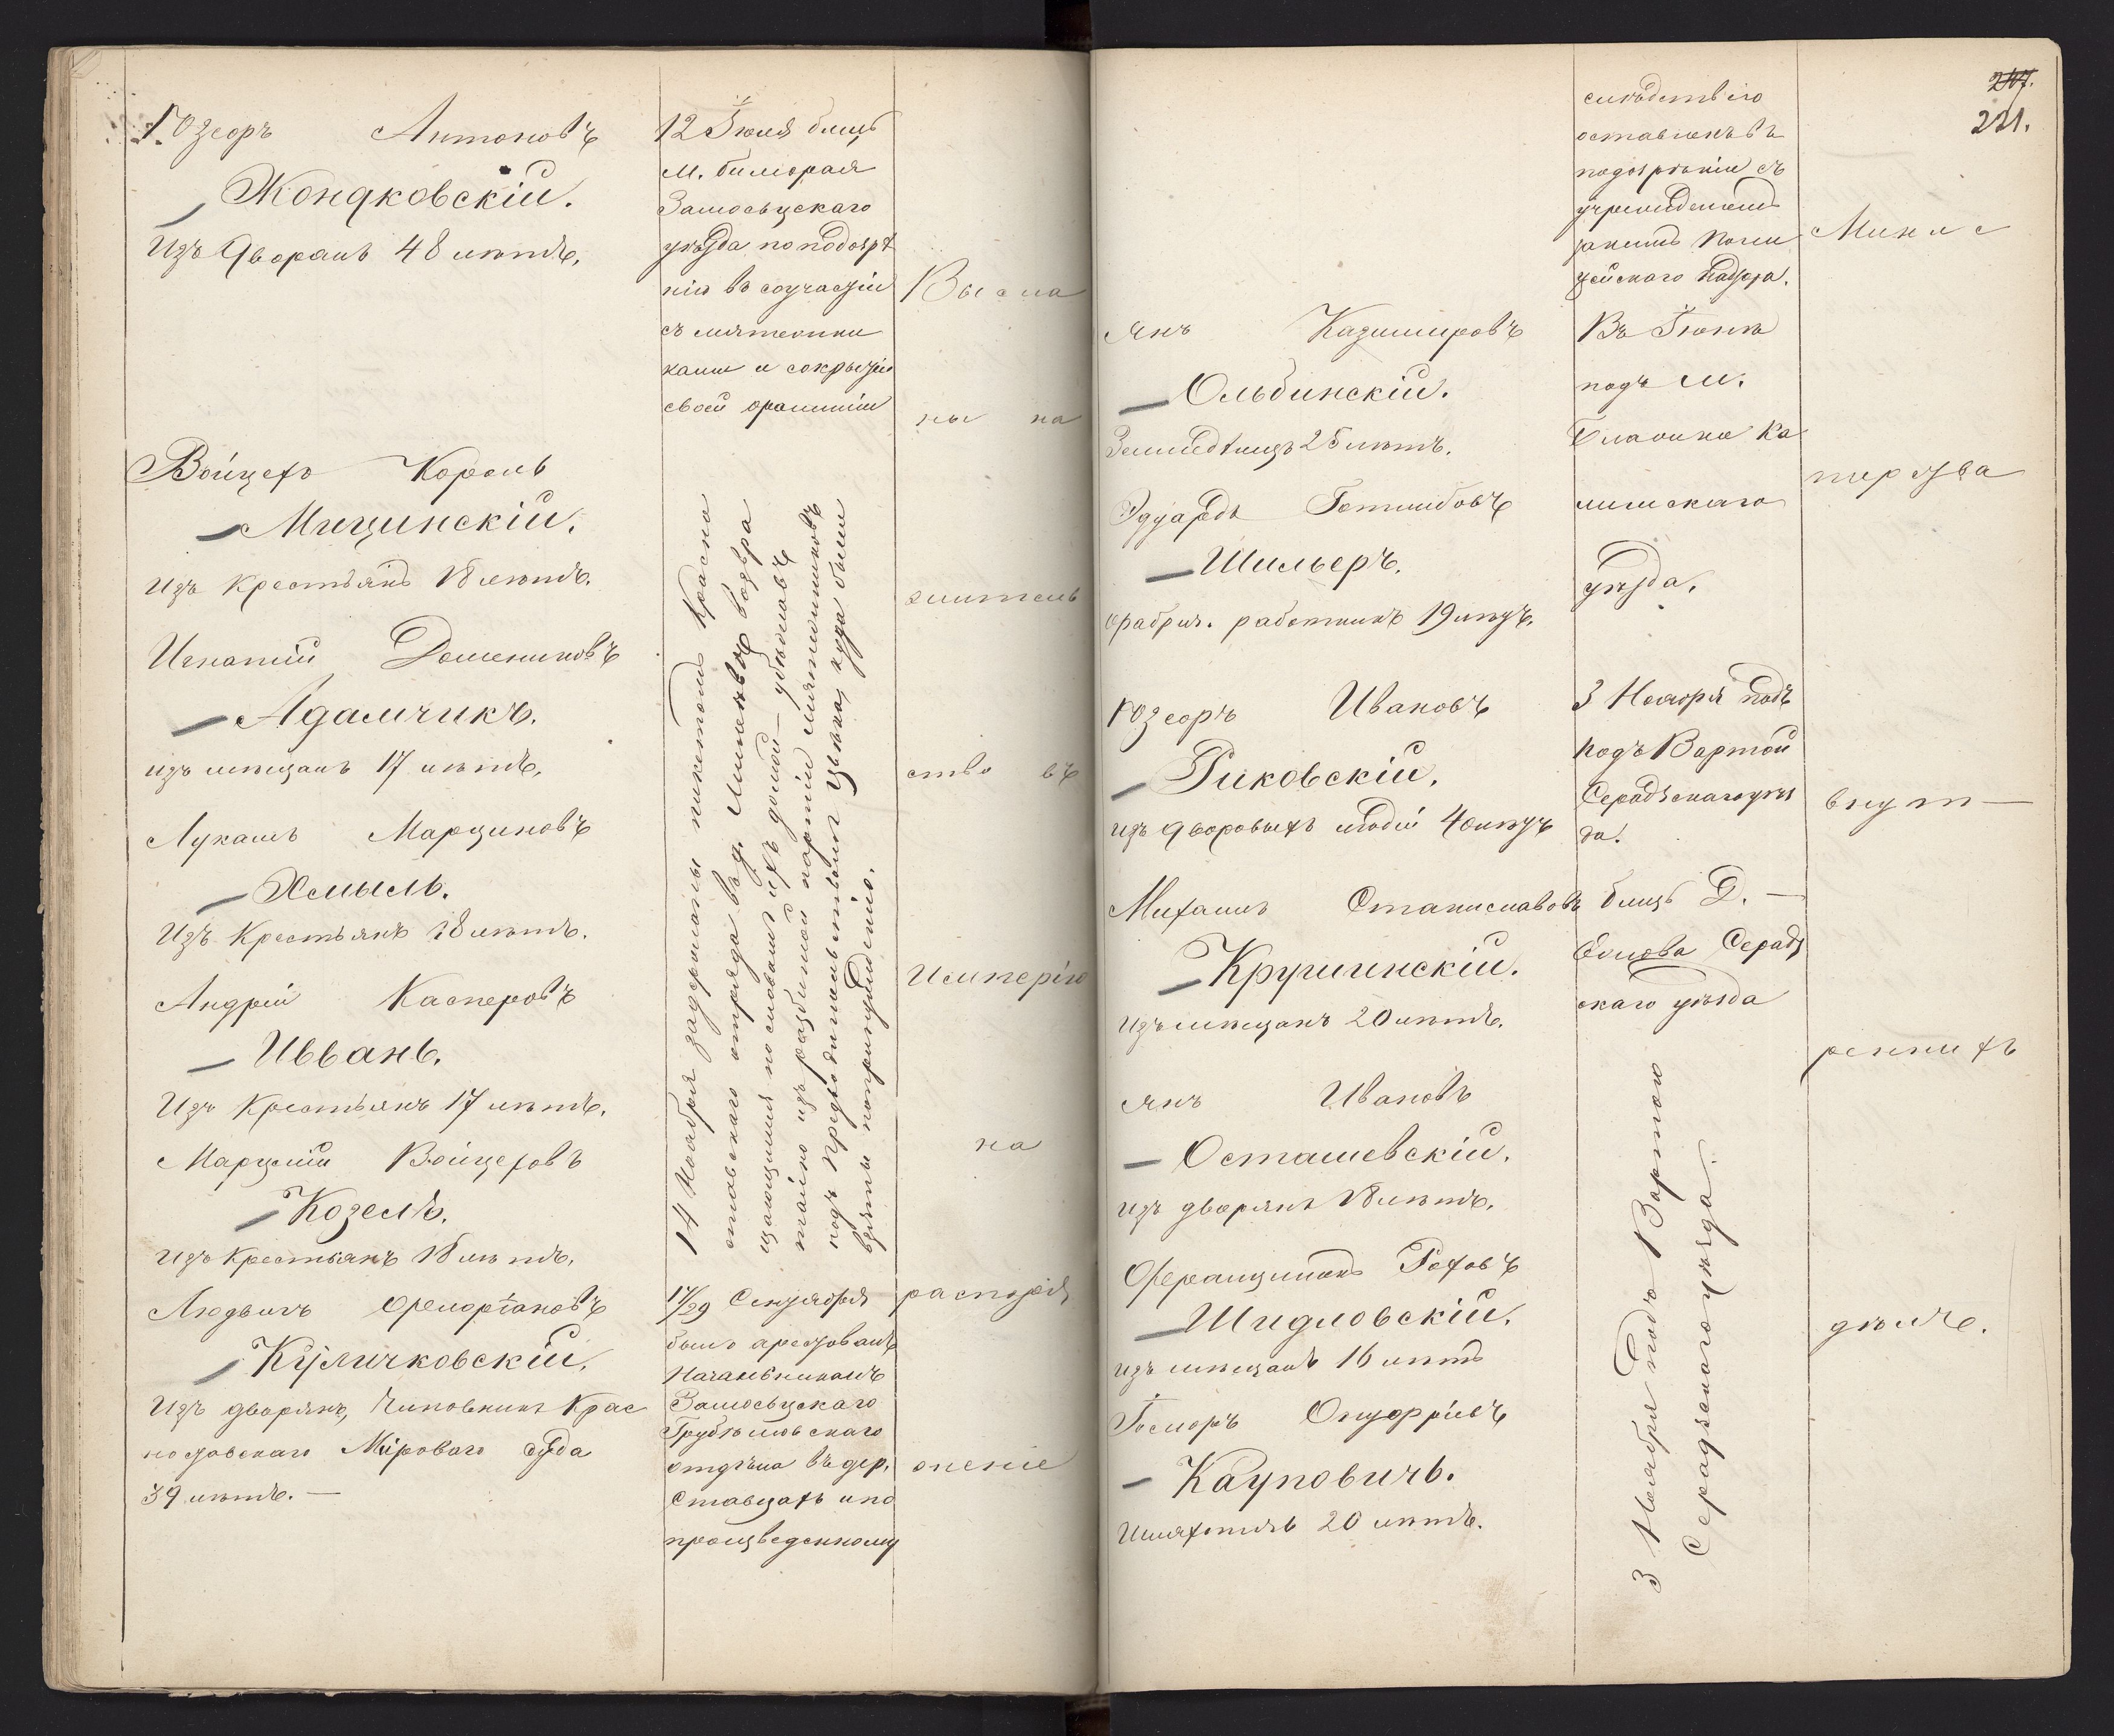 Юзефъ Антоновъ
Жондковскій.
Изъ дворянъ 48 лѣтъ.
Войцехъ Кароль
Мицинскій.
Изъ крестьянъ 18 лѣтъ.
Игнатій Доминиковъ
Адамчикъ.
изъ мѣщанъ 17 лѣтъ.
Лукашъ Марциновъ
Хмыль.
Изъ крестьянъ 18 лѣтъ.
Андрей Касперовъ
Ивванъ.
Изъ Крестьянъ 17 лѣтъ.
Марцелій Войцеховъ
Козелъ.
Изъ крестьянъ 18 лѣтъ.
Людвигъ Флоріановъ
Куличковскій.
Изъ дворянъ, чиновникъ Крас
ноставскаго Мироваго суда
39 лѣтъ. —
12 Іюля близъ
м. Билгорая
Замосьцскаго
уѣзда по подозрѣ
нію въ соучастіи
съ мятежни
ками и сокрытіи
своей фамиліи
14 Ноября задержаны пикетомъ Красно
ставскаго отряда въ д. возвра
щающимися по словамъ ихъ домой —
тайно изъ разбитой партіи мятежниковъ
подъ предводительствомъ куда были
взяты по принужденію.
17/29 Сентября
былъ арестованъ
Начальникомъ
Замосьцскаго
Грубешовскаго
отдѣла въ дер.
Ставцахъ и по
произведенному
Высла
ны на
житель
ство въ
Имперію
на
распоря
женіе
247.
221.
Янъ Казимировъ
Ольбинскій.
Земледѣлецъ 25 лѣтъ.
Эдуардъ Готлибовъ
Шильеръ.
фабрич. работникъ 19 лѣтъ.
Юзефъ Ивановъ
Риковскій.
изъ дворовыхъ людей 40 лѣтъ
Михаилъ Станиславовъ
Кругинскій.
Изъ мѣщанъ 20 лѣтъ.
Янъ Ивановъ
Осташевскій.
изъ дворянъ 18 лѣтъ.
Францишекъ Роховъ
Шидловскій.
изъ мѣщанъ 16 лѣтъ
Онуфріевъ
Кауповичъ.
Шляхтичъ 20 лѣтъ.
слѣдствію
оставленъ въ
подозрѣніи съ
учрежденіемъ
за нимъ поли
цейскаго надзора.
Въ Іюнѣ
подъ м.
Блашки Ка
лишскаго
уѣзда.
3 Ноября подъ
подъ Вартой
Серадзскаго уѣз
да.
близъ Д. —
Серадз
скаго уѣзда
3 Ноября подъ Вартою
Серадзскаго уѣзда.
Минис
терства
внут —
реннихъ
дѣлъ.